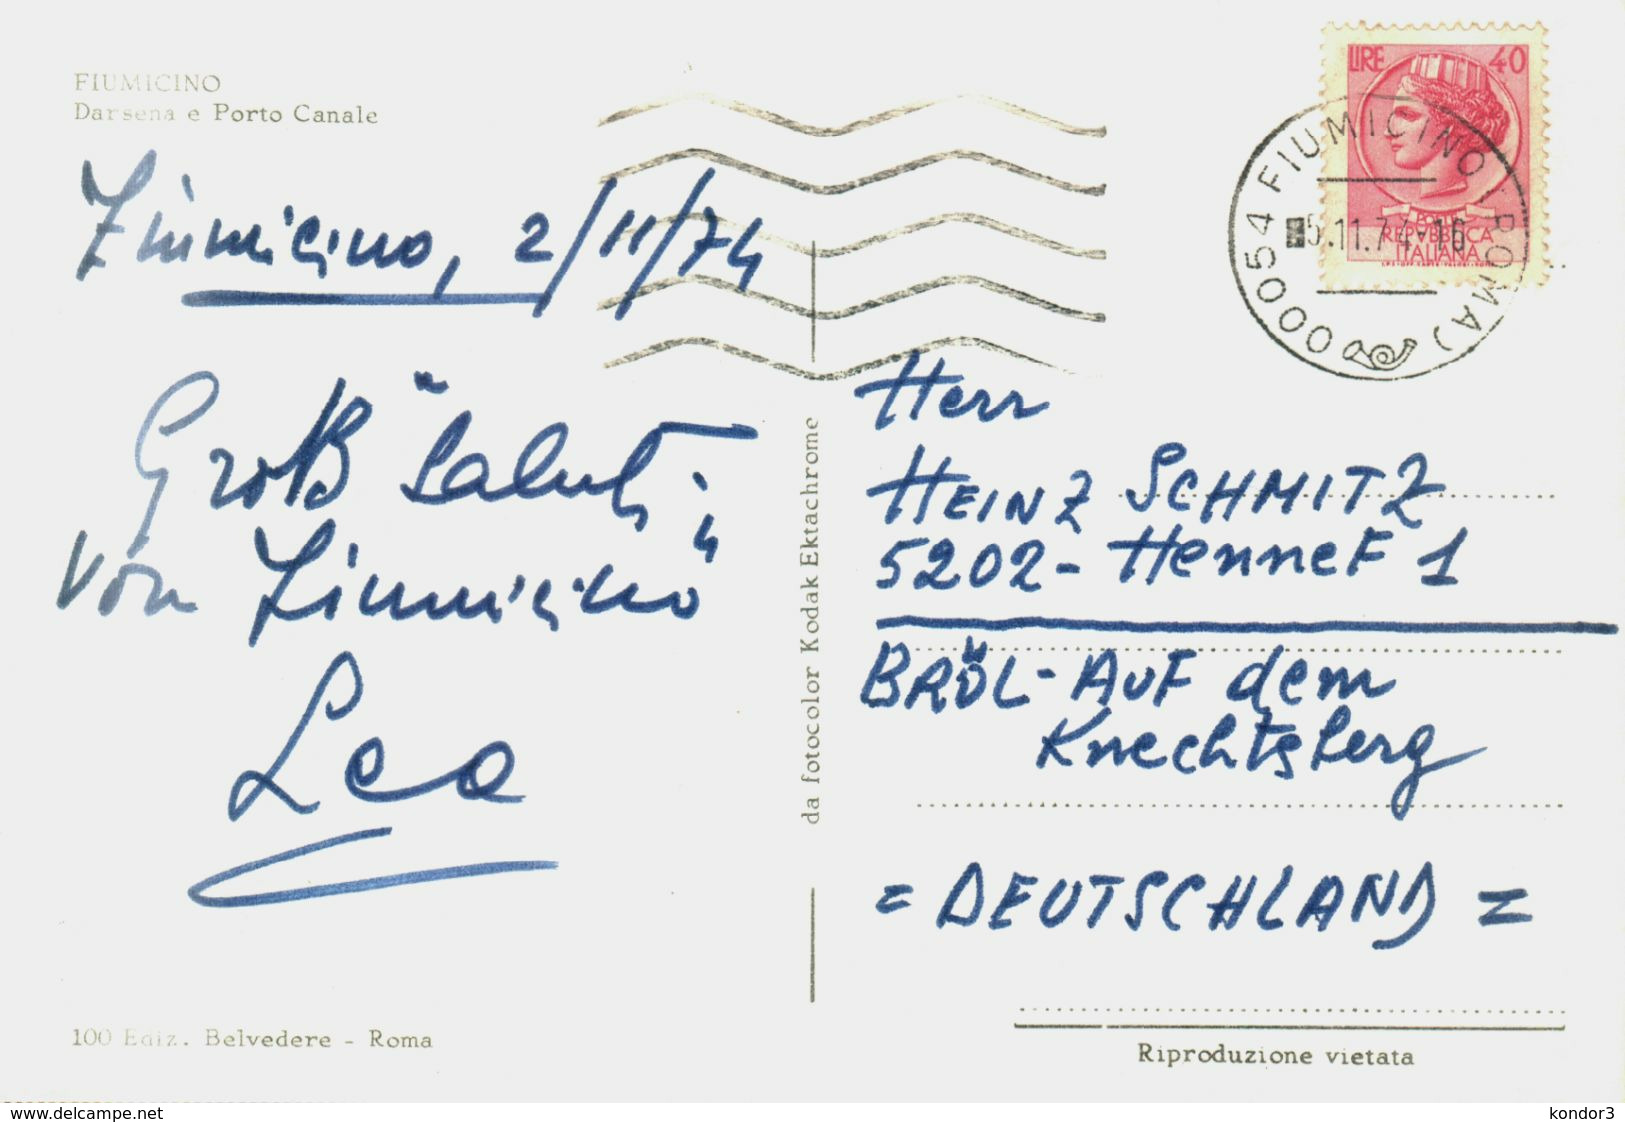 FIUMICINO
Darsena e Porto Canale
Fiumicino, 2/11/74
Groß "Saluti
von Fiumicino"
Leo
100 Ediz. Belvedere - Roma
da fotocolor Kodak Ektachrome
LIRE 40
POSTE
REPVBBLICA
ITALIANA
00054 FIUMICINO (ROMA)
5.11.74-16
Herr
HEINZ SCHMITZ
5202- HenneF 1
BRÖL- AUF dem
Knechtsberg
= DEUTSCHLAND =
Riproduzione vietata
www.delcampe.net
kondor3